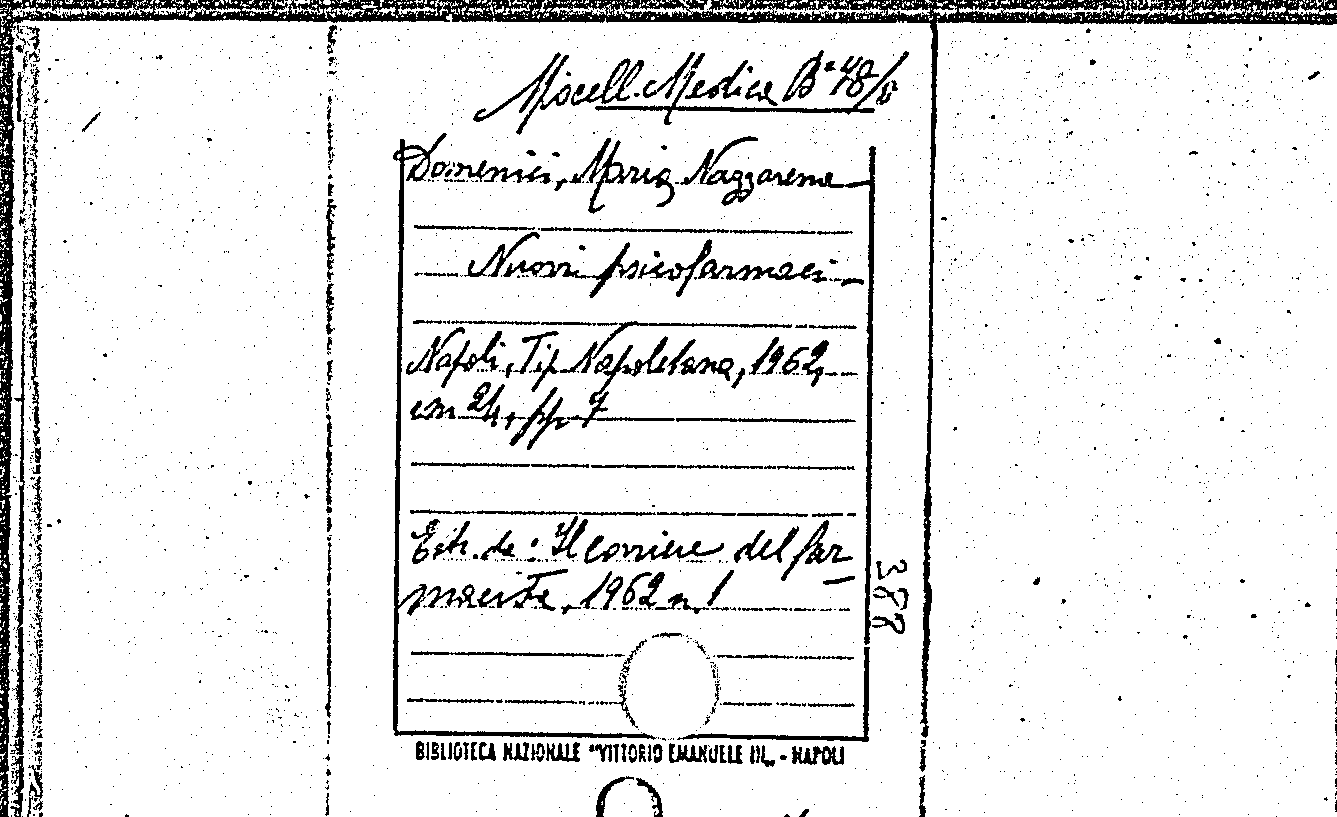 Miscell. Medica B<sup>a</sup> 48/
Domenici, Maria Nazzarena
Nuovi psicofarmaci
Napoli, Tip. Napoletana, 1962,
cm 24, pp. 7
Estr. da: Il Corriere del far
macista, 1962 n. 1
388
BIBLIOTECA NAZIONALE "VITTORIO EMANUELE III„ - NAPOLI